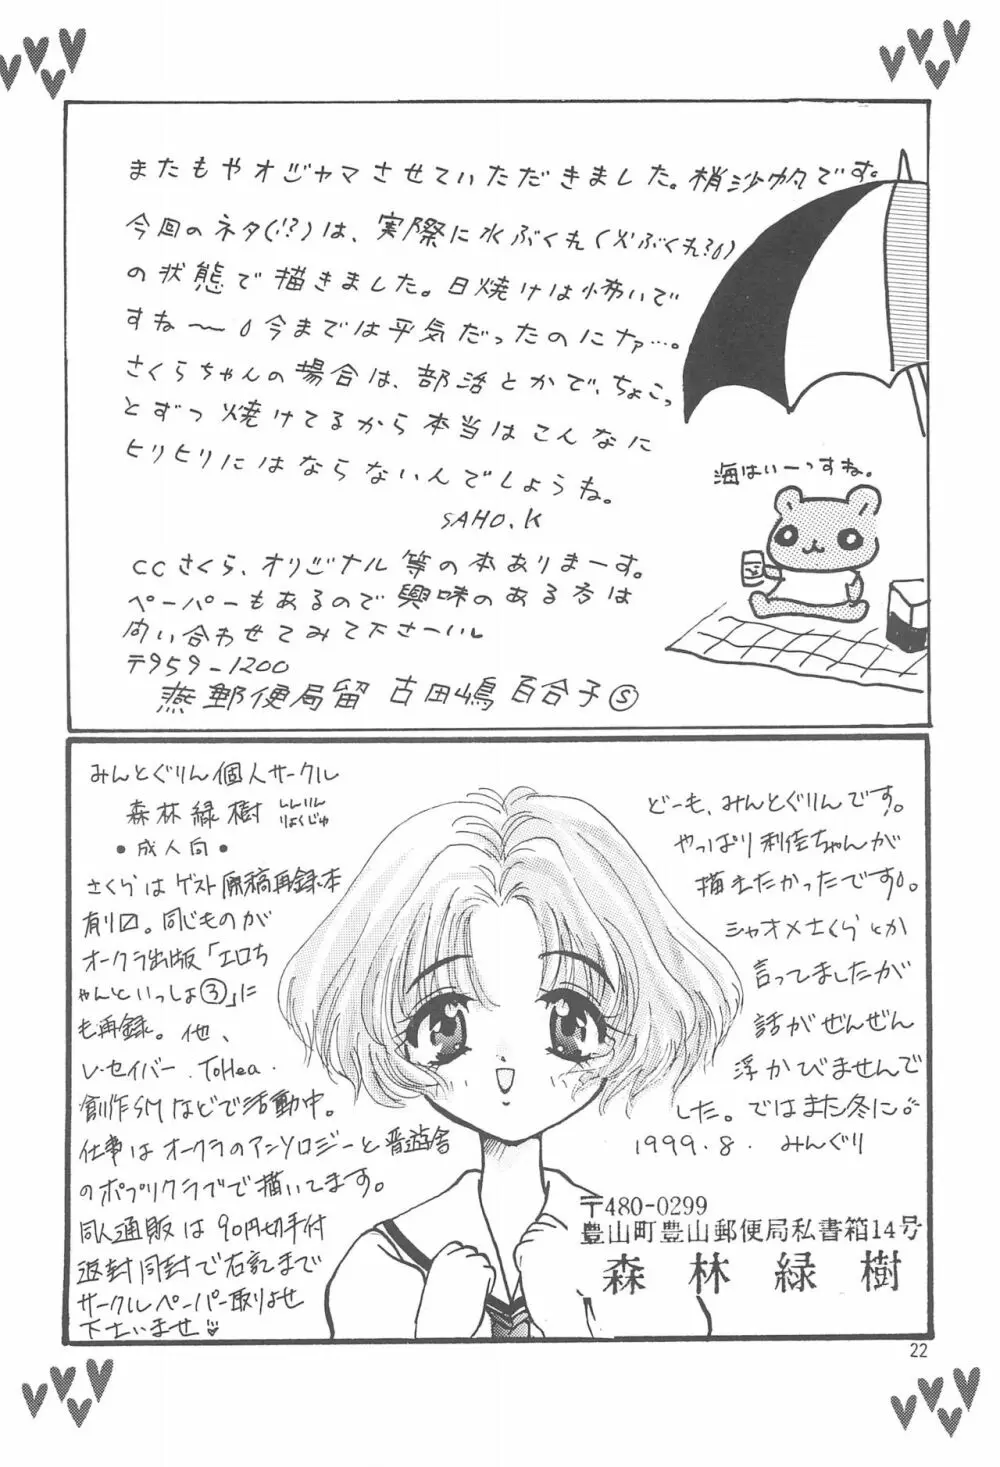 またもやオジャマさせていただきました。梢沙帆です。
今回のネタ(!?)は、実際に水ぶくれ(火ぶくれ?)
の状態で描きました。日焼けは怖いで
すね〜 今までは平気だったのにナァ…。
さくらちゃんの場合は、部活とかで、ちょこっ
とずつ焼けてるから本当はこんなに
ヒリヒリにはならないんでしょうね。
SAHO.K
CCさくら、オリジナル等の本ありまーす。
ペーパーもあるので興味のある方は
問い合わせてみて下さーいし
〒959-1200
燕郵便局留 古田嶋百合子Ⓢ
海はいーっすね。
みんとぐりん個人サークル
森林緑樹 しんりん
りょくじゅ
●成人向●
さくらはゲスト原稿再録本
有り〼。同じものが
オークラ出版「エロち
ゃんといっしょ③」に
も再録。他、
レ・セイバー.ToHea.
創作SMなどで活動中。
仕事はオークラのアンソロジーと晋遊舎
のポプリクラブで描いてます。
同人通販は90円切手付
返封同封で右記まで
サークルペーパー取りよせ
下さいませ♥
どーも、みんとぐりんです。
やっぱり利佳ちゃんが
描えたかったです。
シャオメさくらとか
言ってましたが
話がぜんぜん
浮かびませんで
した。ではまた冬に
1999.8. みんぐり
〒480-0299
豊山町豊山郵便局私書箱14号
森林緑樹
22